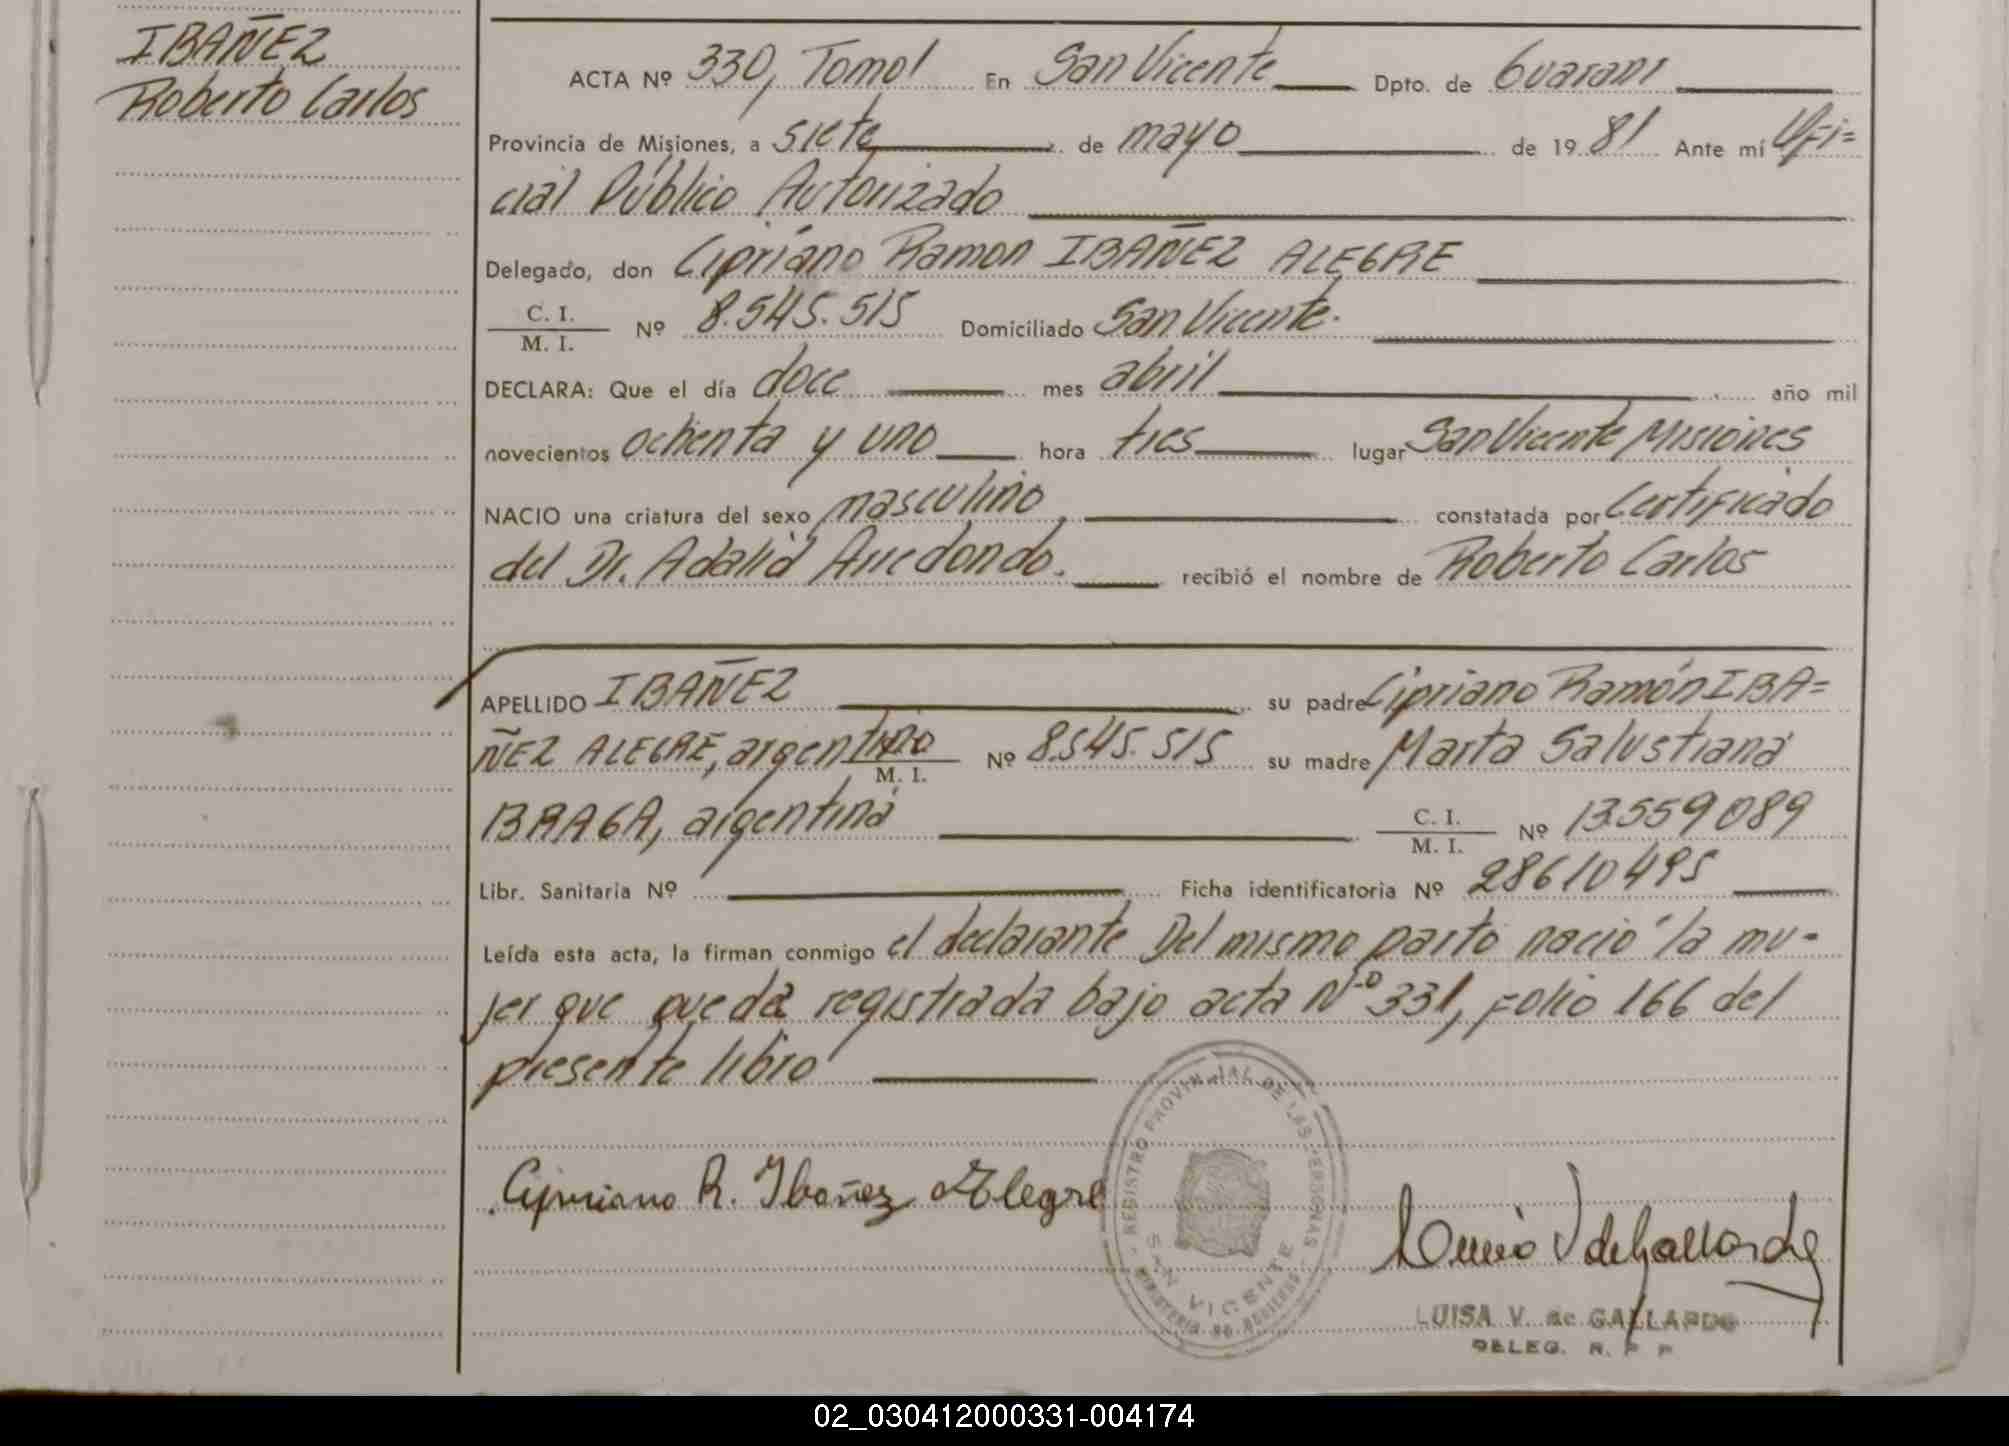 IBAÑEZ
Roberto Carlos
ACTA Nº 330, Tomo I En San Vicente Dpto. de Guarani
Provincia de Misiones, a siete de mayo de 1981 Ante mí Ofi=
cial Público Autorizado
Delegado, don Cipriano Ramon IBAÑEZ ALEGRE
C. I.
M. I. Nº 8.545.515 Domiciliado San Vicente.
DECLARA: Que el día doce mes abril año mil
novecientos ochenta y uno hora tres lugar San Vicente Misiones
NACIO una criatura del sexo masculino, constatada por Certificado
del Dr. Adalid Arredondo. recibió el nombre de Roberto Carlos
APELLIDO IBAÑEZ su padre Cipriano Ramón IBA=
ÑEZ ALEGRE, argentino M. I. Nº 8.545.515 su madre Marta Salustiana
BRAGA, argentina C. I. M. I. Nº 13559089
Libr. Sanitaria Nº Ficha identificatoria Nº 28610495
Leída esta acta, la firman conmigo el declarante Del mismo parto nació la mu-
jer que queda registrada bajo acta Nº 331, Folio 166 del
presente libro
Cipriano R. Ibañez Alegre
REGISTRO PROVINCIAL DE LAS PERSONAS
SAN VICENTE
MINISTERIO DE GOBIERNO
V de Gallardo
LUISA V. de GALLARDO
DELEG. R. P. P.
02_030412000331-004174